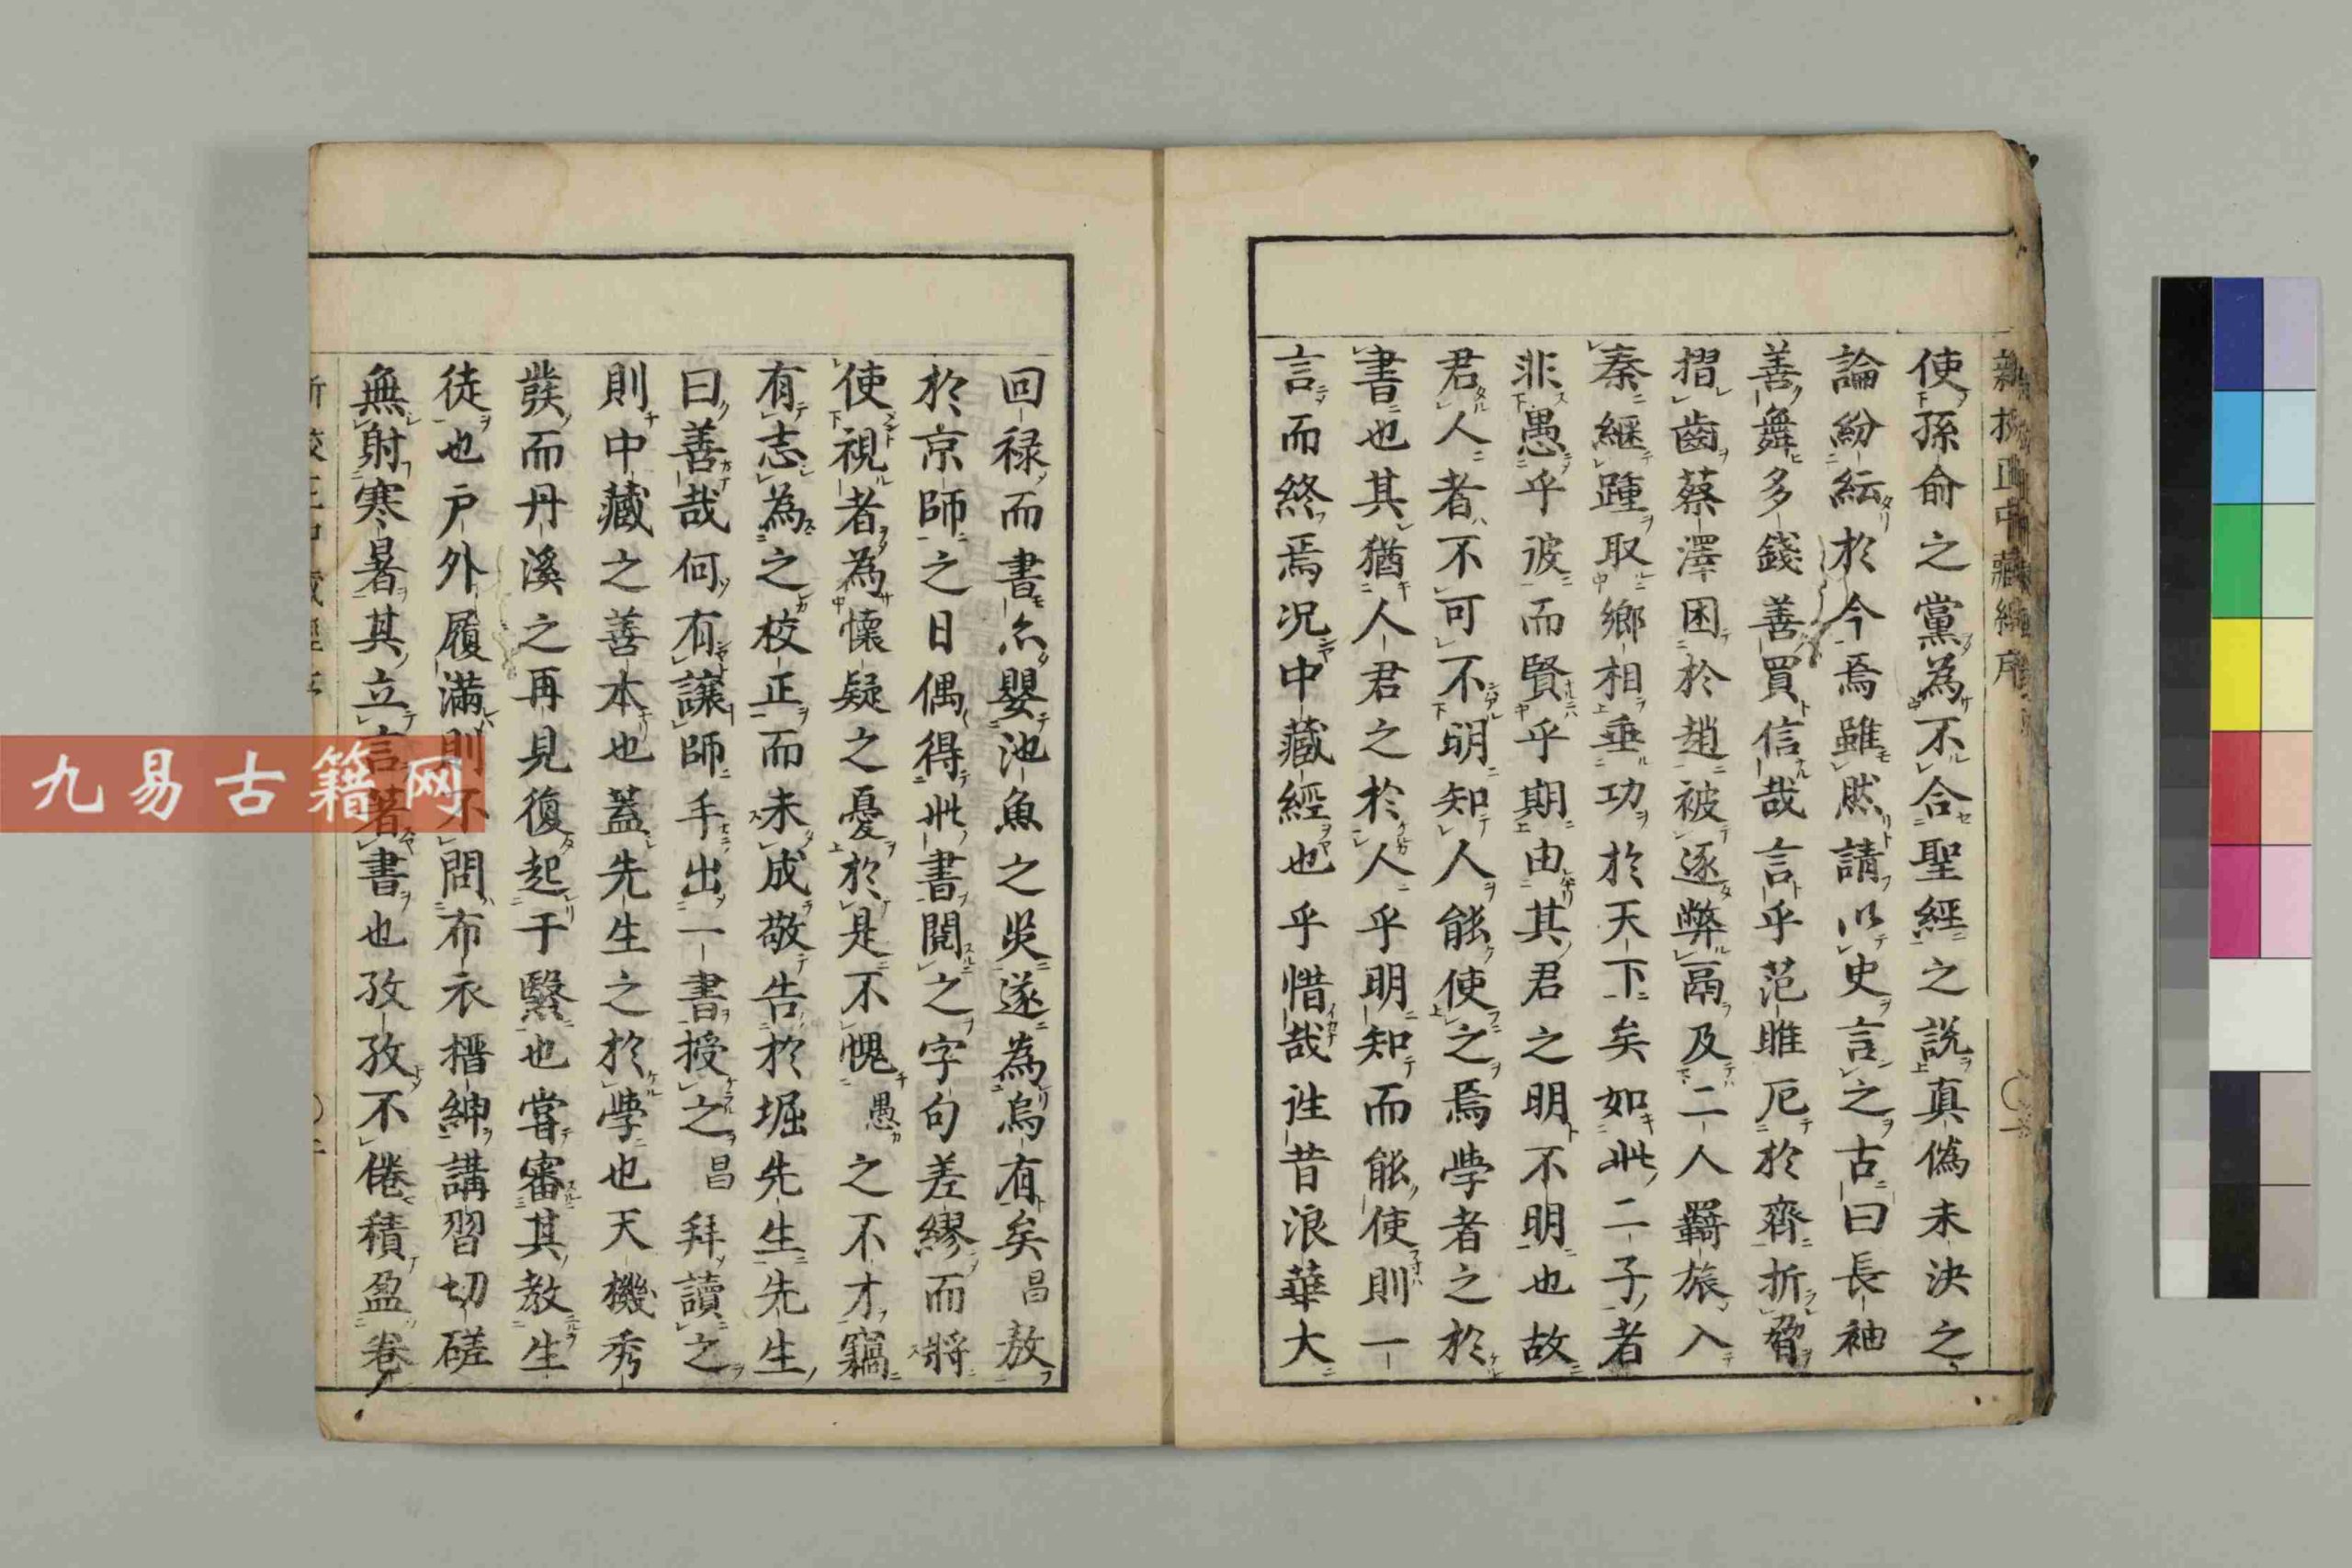 使孫俞之黨為不合聖經之說真僞未決之
論紛紜於今焉雖然請以史言之古曰長袖
善舞多錢善買信哉言乎范雎厄於齊折脅
摺齒蔡澤困於趙被逐弊鬲及二人羇旅入
秦繼踵取鄉相垂功於天下矣如此二子者
非愚乎彼而賢乎期由其君之明不明也故
君人者不可不明知人能使之焉學者之於
書也其猶人君之於人乎明知而能使則一
言而終焉况中藏經也乎惜哉往昔浪華大
回禄而書亦嬰池魚之災遂為烏有矣昌敖
於京師之日偶得此書閱之字句差繆而將
使視者為懷疑之憂於是不愧愚之不才竊
有志為之校正而未成敬告於堀先生先生
曰善哉何有讓師手出一書授之昌拜讀之
則中藏之善本也蓋先生之於學也天機秀
發而丹溪之再見復起于緊也嘗審其教生
徒也戶外履滿則不問布衣搢紳講習切磋
無射寒暑其立言著書也孜孜不倦積盈卷
九易古籍网